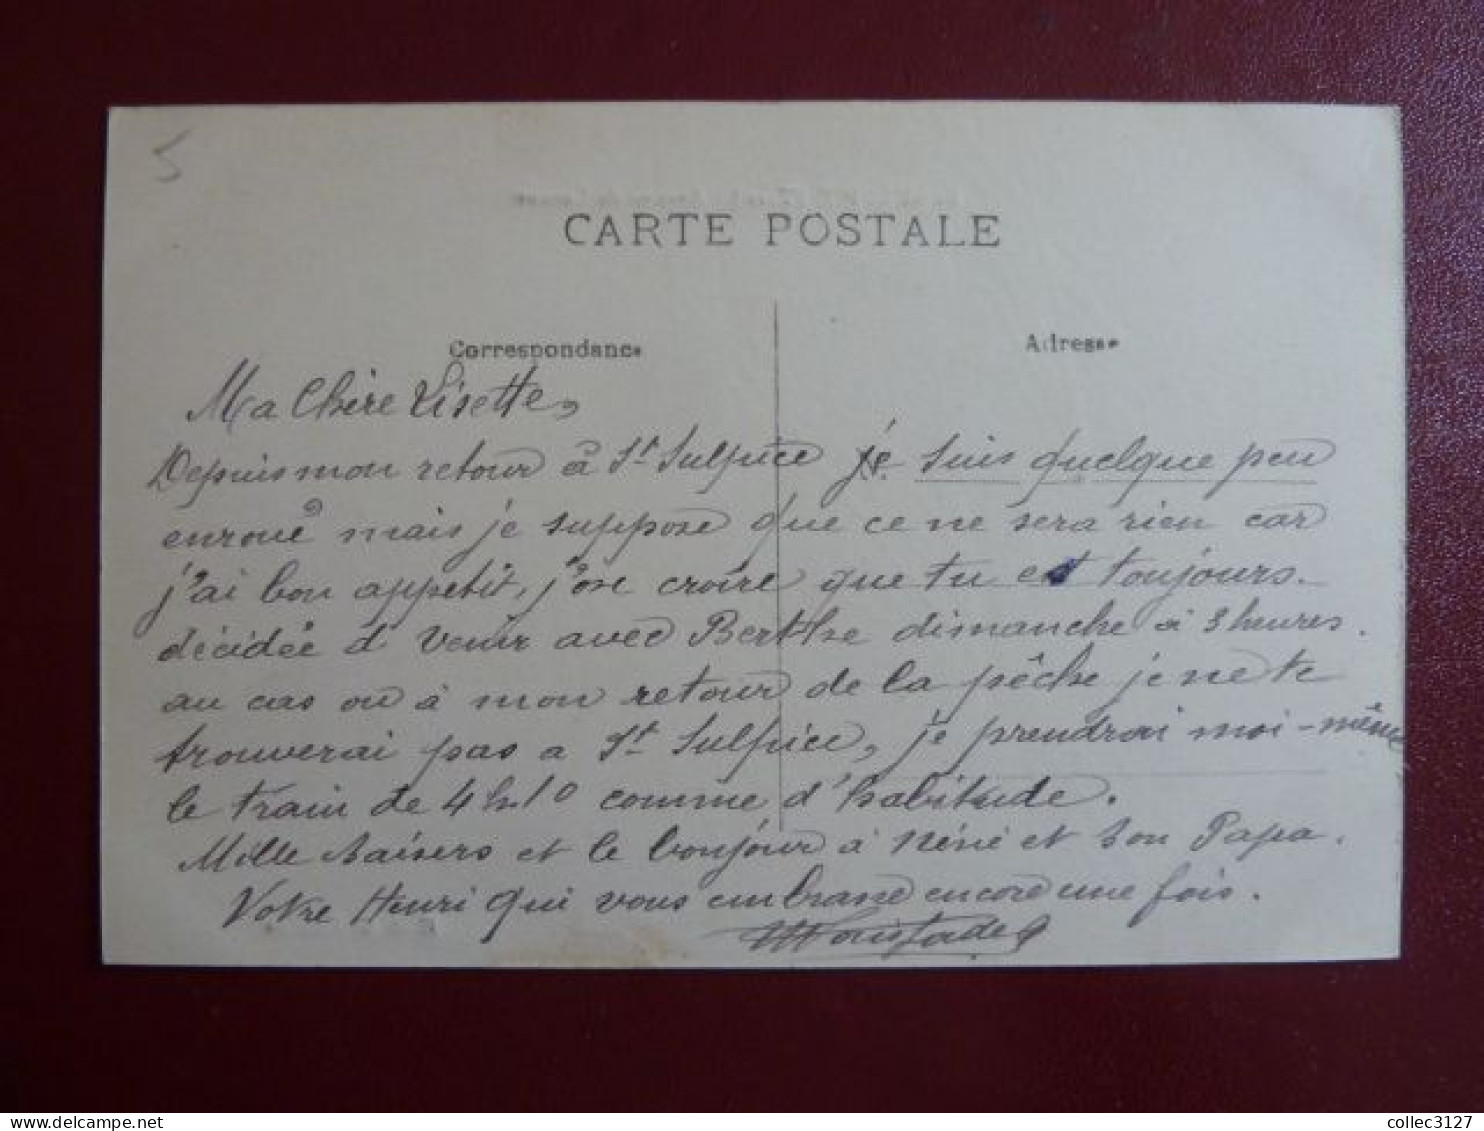 5
CARTE POSTALE
Correspondance
Adresse
Ma Chère Lisette,
Depuis mon retour à St Sulpice je suis quelque peu
enroué mais je suppose que ce ne sera rien car
j'ai bon appetit, j'ose croire que tu est toujours
décidée d venir avec Berthe dimanche à 3 heures.
au cas ou à mon retour de la pêche je ne te
trouverai pas a St Sulpice, je prendrai moi-même
le train de 4h10 comme d'habitude.
Mille baisers et le bonjour à Néné et son Papa.
Votre Henri qui vous embrasse encore une fois.
collec3127
www.delcampe.net